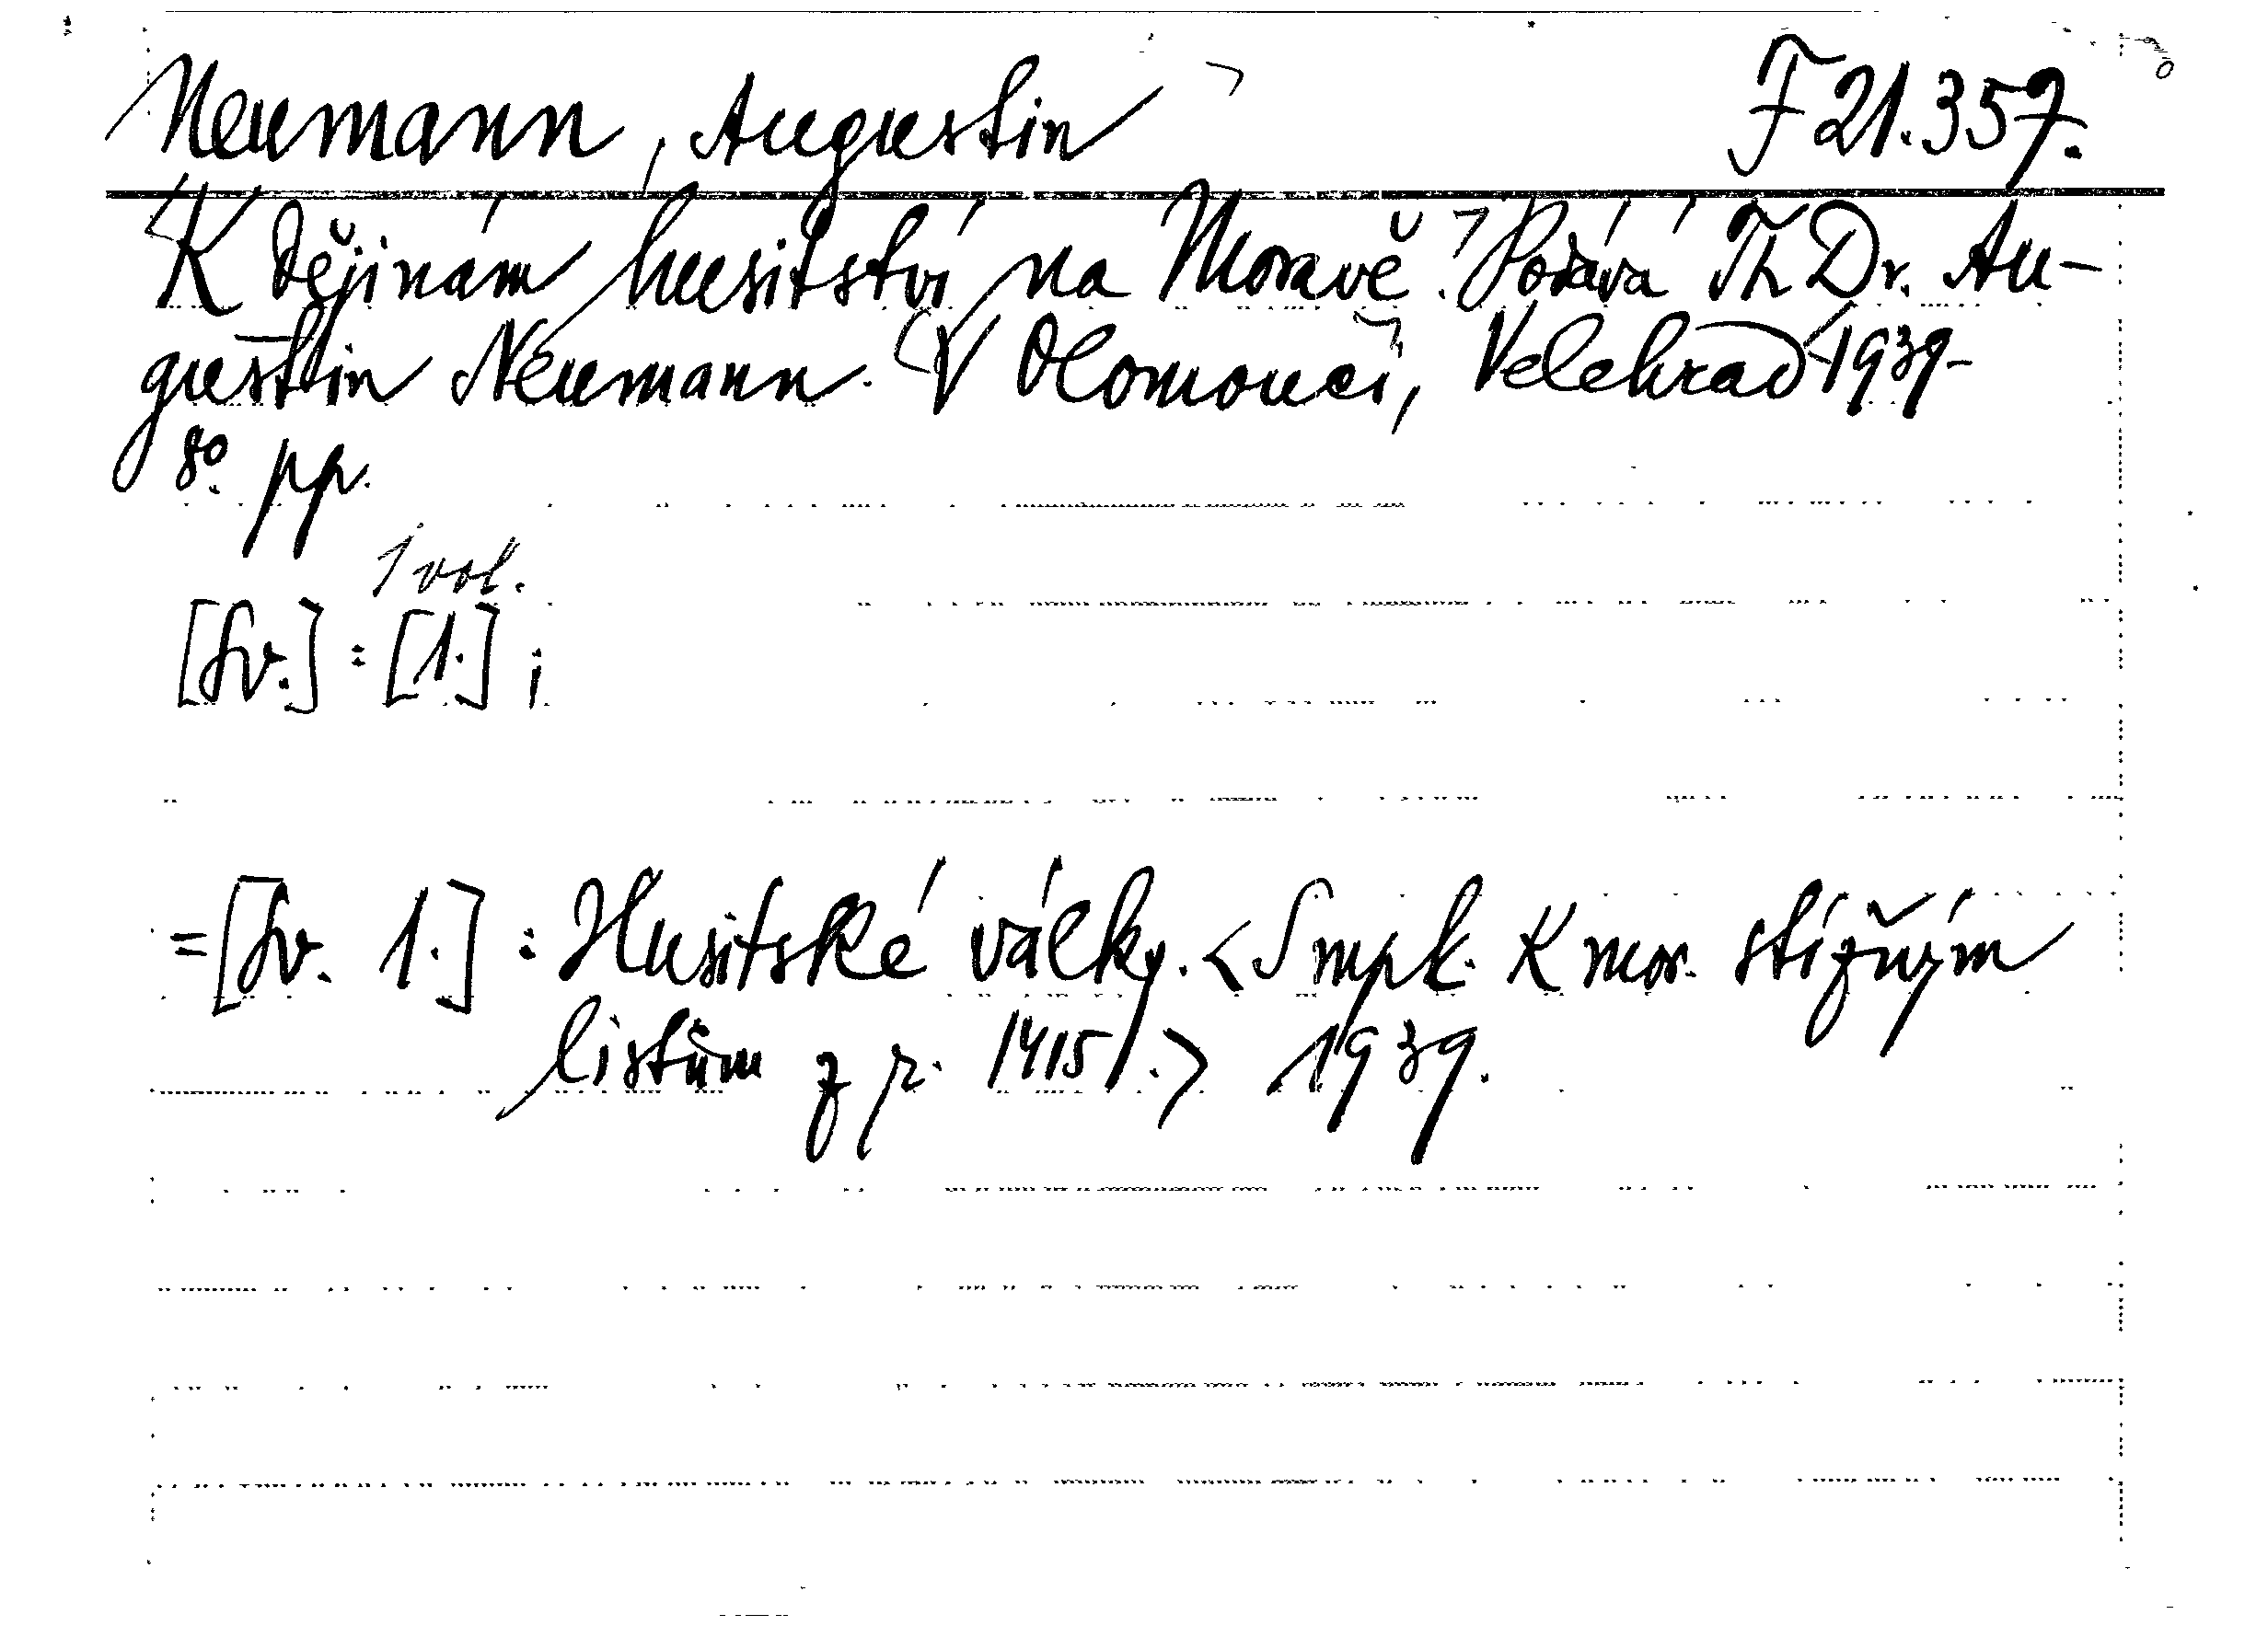 Neumann, Augustin F 21.357.
K dějinám husitství na Moravě. Podává Th Dr. Au-
gustin Neumann. V Olomouci, Velehrad 1939-
8° pp.
1 vol.
[Sv.] : [1.] ;
=[Sv. 1.] : Husitské války. < S mpk. K mor. stížným
listům z r. 1415.> 1939.